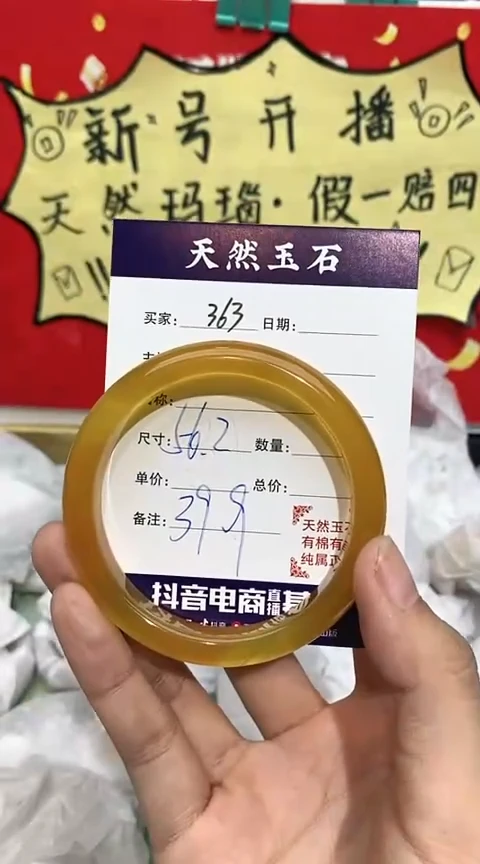 新号开播
天然玛瑙·假一赔四
天然玉石
买家: 363 日期:
尺寸: 56.2 数量:
单价: 总价:
备注: 39.9
天然玉石
有棉有
纯属正
抖音电商直播基